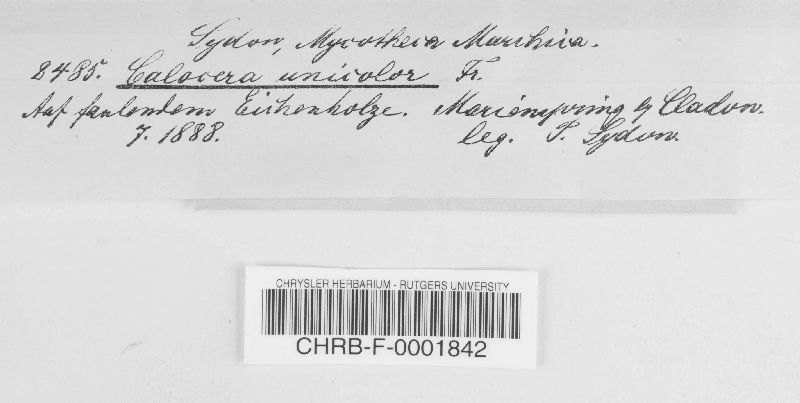 Sydow, Mycotheca Marchica.
2485. Calocera unicolor Fr.
Auf faulendem Eichenholze. Marienspring b/ Cladow.
7. 1888. leg. P. Sydow.
CHRYSLER HERBARIUM - RUTGERS UNIVERSITY
CHRB-F-0001842